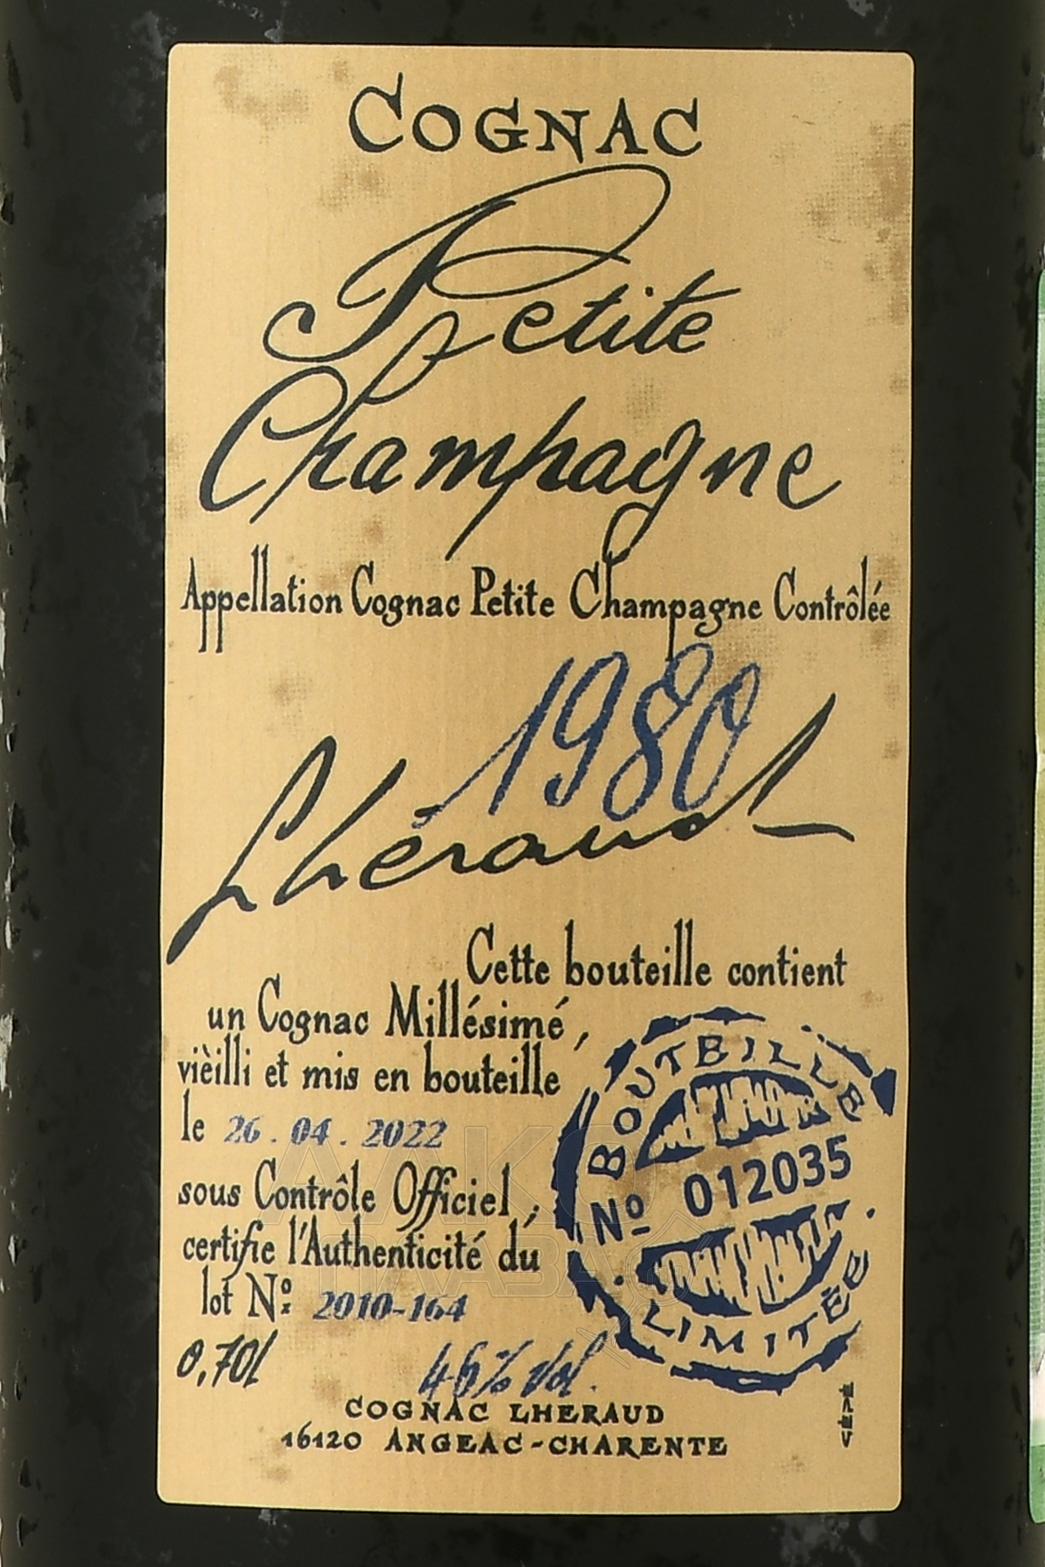 COGNAC
Petite
Champagne
Appellation Cognac Petite Champagne Contrôlée
1980
Lhéraud
Cette bouteille contient
un Cognac Millésimé,
vièilli et mis en bouteille
le 26.04.2022
sous Contrôle Officiel,
certifie l'Authenticité du
lot Nº: 2010-164
BOUTEILLE
Nº 012035
LIMITÉE
0,70l 46% Vol.
COGNAC LHERAUD
16120 ANGEAC-CHARENTE